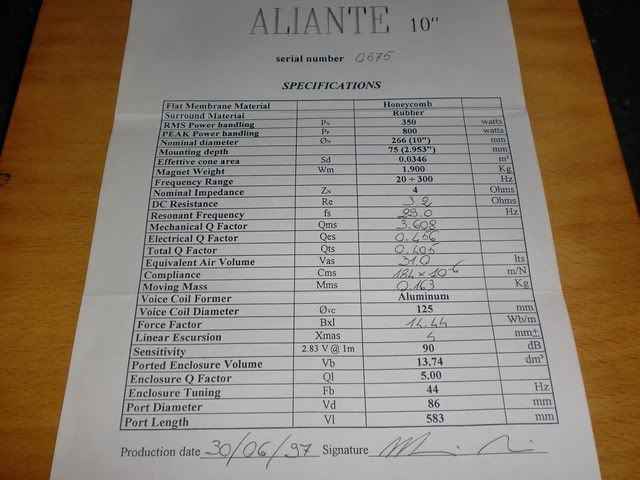 ALIANTE 10"
serial number 0675
SPECIFICATIONS
Flat Membrane Material Honeycomb
Surround Material Rubber
RMS Power handling PN 350 watts
PEAK Power handling PP 800 watts
Nominal diameter ØN 266 (10") mm
Mounting depth 75 (2.953") mm
Effective cone area Sd 0.0346 m²
Magnet Weight Wm 1.900 Kg
Frequency Range 20 ÷ 300 Hz
Nominal Impedance ZN 4 Ohms
DC Resistance Re 3.2 Ohms
Resonant Frequency fs 29.0 Hz
Mechanical Q Factor Qms 3.608
Electrical Q Factor Qes 0.456
Total Q Factor Qts 0.405
Equivalent Air Volume Vas 31.0 lts
Compliance Cms 184 x 10⁻⁶ m/N
Moving Mass Mms 0.163 Kg
Voice Coil Former Aluminum
Voice Coil Diameter Øvc 125 mm
Force Factor Bxl 14.44 Wb/m
Linear Escursion Xmas 4 mm±
Sensitivity 2.83 V @ 1m 90 dB
Ported Enclosure Volume Vb 13.74 dm³
Enclosure Q Factor Ql 5.00
Enclosure Tuning Fb 44 Hz
Port Diameter Vd 86 mm
Port Length Vl 583 mm
Production date 30/06/97 Signature